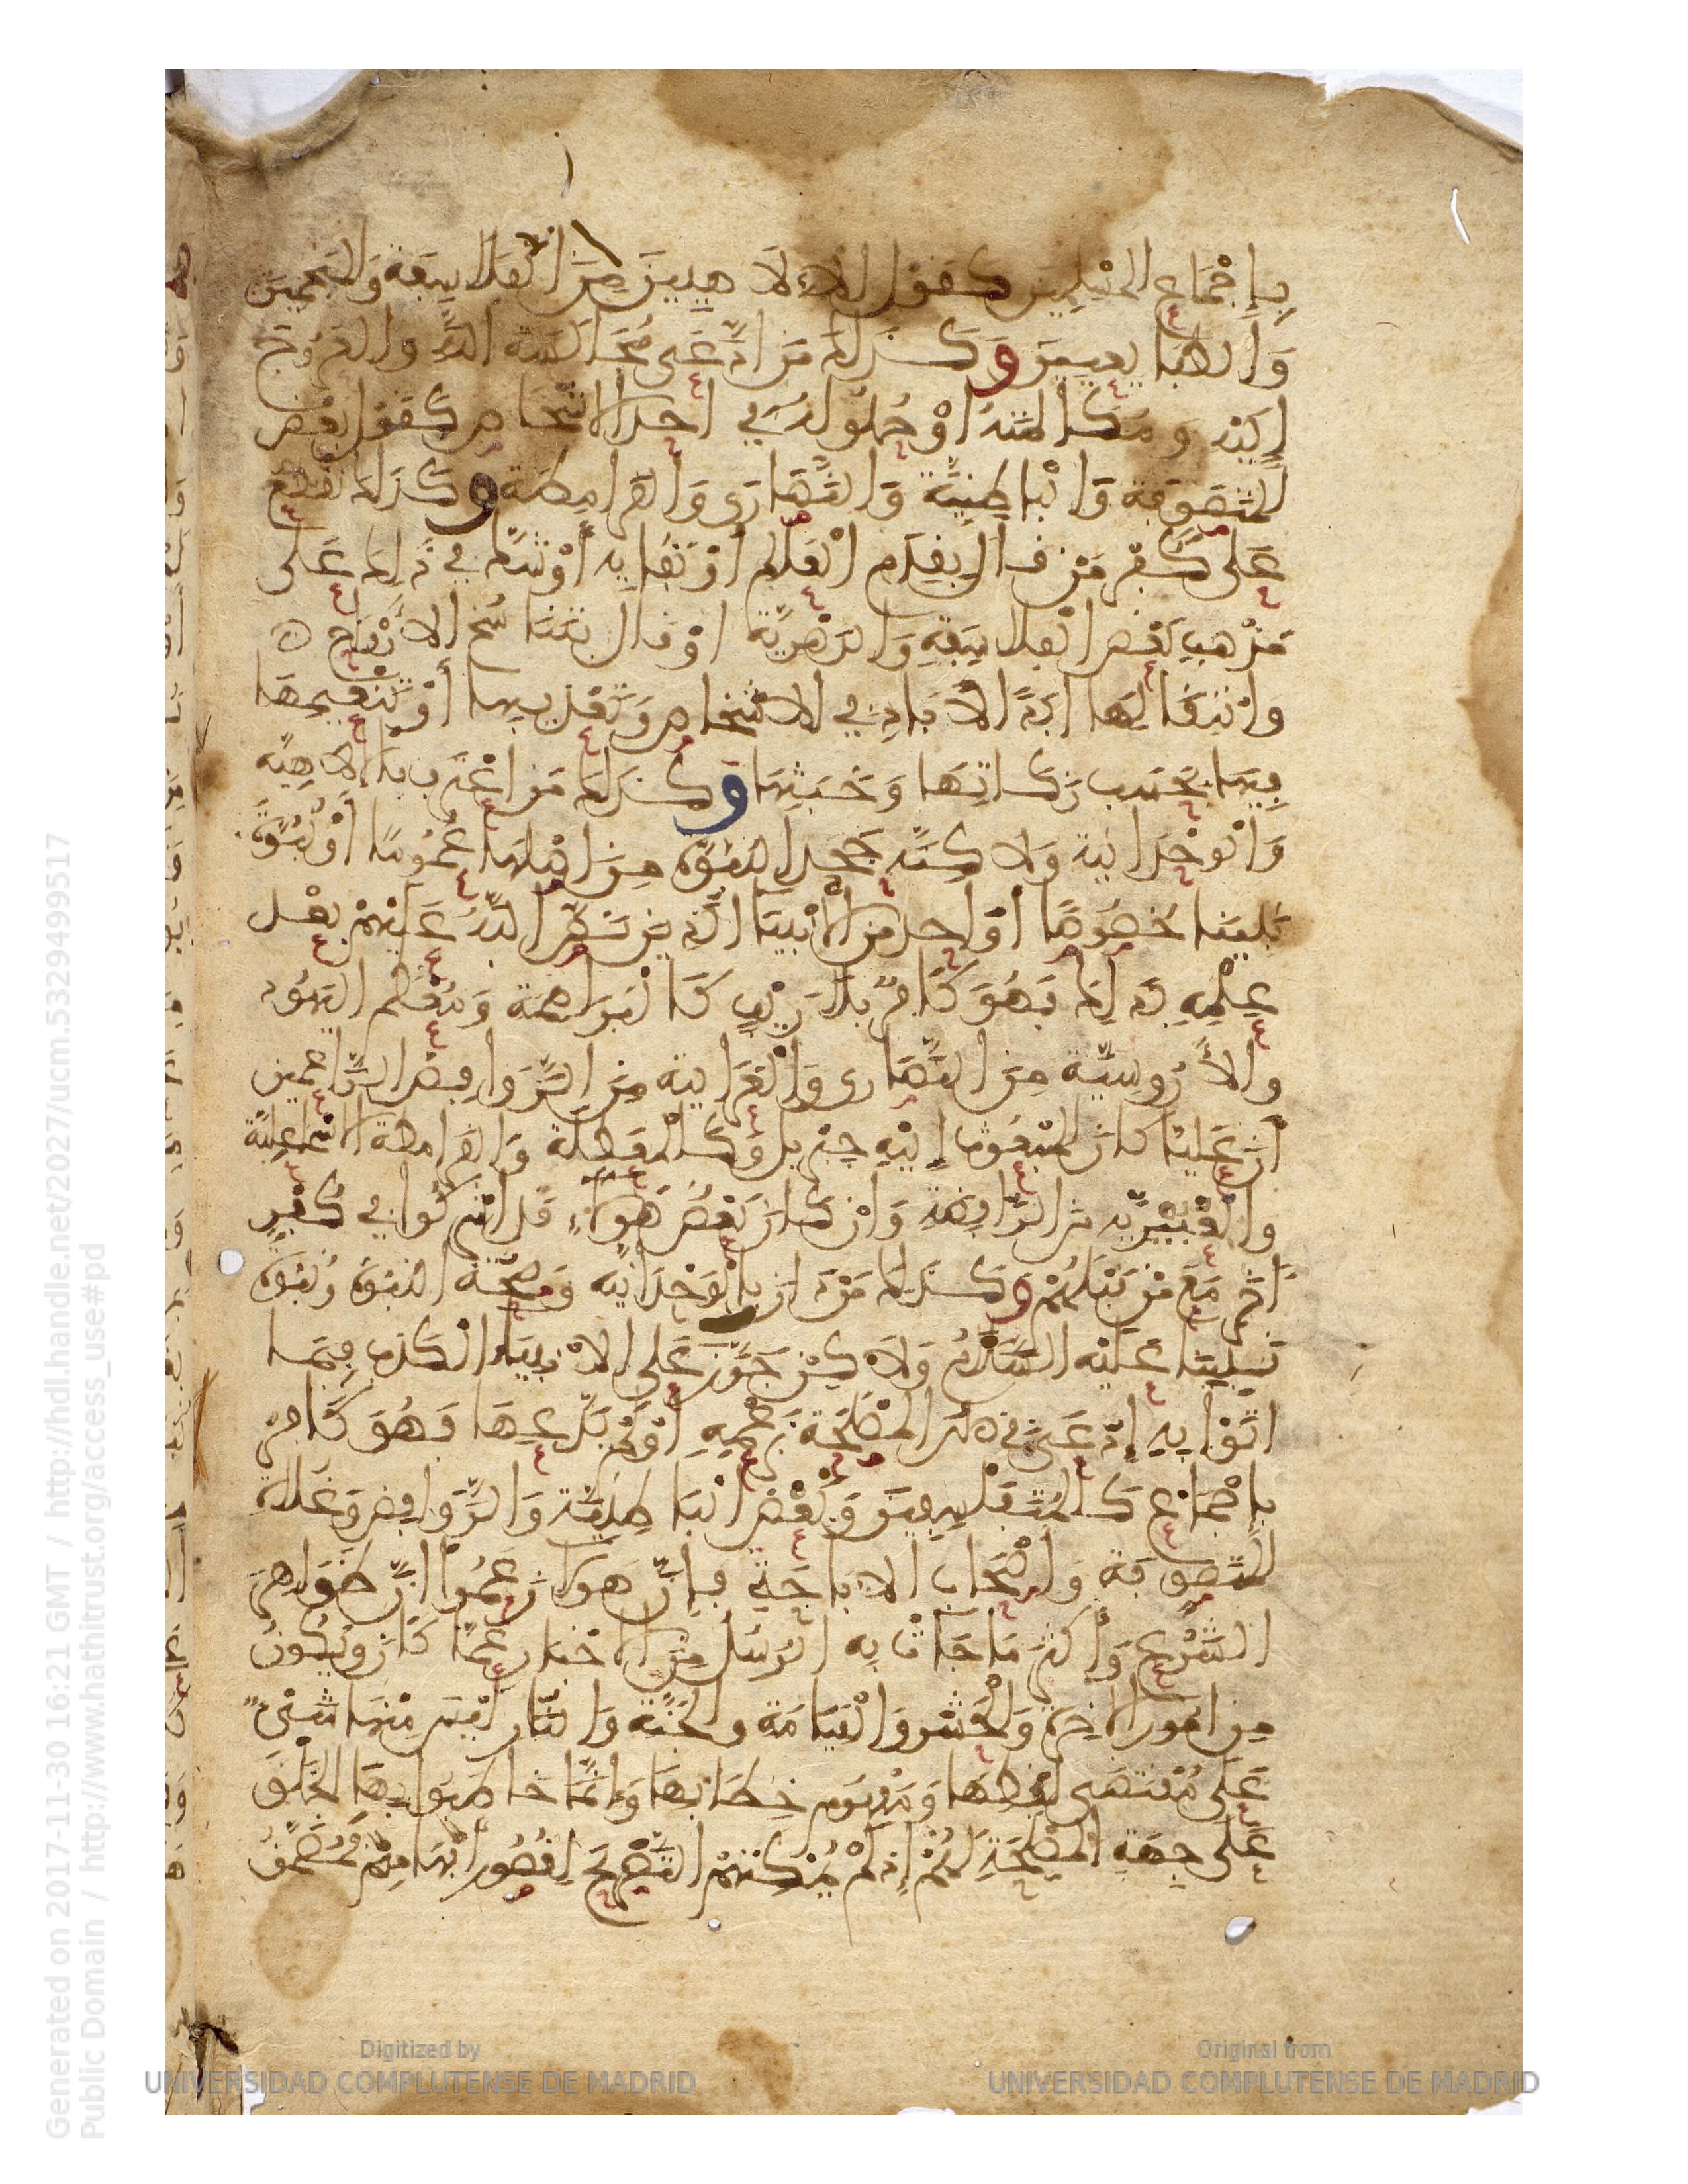 بِإِجْمَاعِ المُسْلِمِينَ كَقَوْلِ الإلاهِيينَ مِنَ الْفَلَاسِفَةِ وَالمُنَجِّمِينَ
وَالطَّبَايِعِيِّينَ وَكَذَلِكَ مَنِ ادَّعَى مُجَالَسَةَ اللَّهِ وَالعُرُوجَ
إِلَيْهِ وَمُكَالَمَتَهُ أَوْ حُلُولَهُ فِي احدِ الاشْخَاصِ كَقَوْلِ بَعْضِ
المُتَصَوِّفَةِ وَالْبَاطِنِيَّةِ وَالنَّصَارَى وَالقَرَامِطَةِ وَكَذَلِكَ نَقْطَعُ
عَلَى كُفْرِ مَنْ قَالَ بِقِدَمِ الْعَالَمِ أَوْ بَقَايِهِ أَوْ شَكَّ فِي ذَلِكَ عَلَى
مَذْهَبِ بَعْضِ الْفَلَاسِفَةِ وَالدَّهْرِيَّةِ اوْ قَالَ بِتَنَاسُخِ الارْوَاحِ
وَانْتِقَالِهَا أَبَدَ الآبَادِ فِي الاشْخَاصِ وَتَعْذِيبِهَا أَوْ تَنْعِيمِهَا
فِيهَا بِحَسَبِ زَكَاتِهَا وَخُبْثِهَا وَكَذَلِكَ مَنِ اعْتَرَفَ بِالالاهِيَّةِ
وَالْوَحْدَانِيةِ وَلاكِنَّهُ جَحَدَ النُّبُوَّةَ مِنْ اصْلِهَا عُمُومًا أَوْ نُبُوَّةَ
نَبِيِّنَا خُصُوصًا أَوْ احدٍ مِنَ الأنْبِيَا الَّذِينَ نَصَّ اللَّهُ عَلَيْهِمْ بَعْدَ
عِلْمِهِ بِذَلِكَ فَهُوَ كَافِرٌ بِلَا رَيْبٍ كَالْبَرَاهِمَةِ وَمُعْظَمِ اليَهُودِ
وَالأَرُوسِيَّةِ مِنَ النَّصَارَى وَالْغُرَابِيةِ مِنَ الرَّوَافِضِ الزَّاعِمِينَ
أَنَّ عَلِيًّا كَانَ المَبْعُوثَ إِلَيْهِ جِبْرِيلُ وَكَالْمُعَطِّلَةِ وَالقَرَامِطَةِ الاسْمَاعِلِيَّةِ
وَالْعَنْبَرِيَّةِ مِنَ الرَّافِضَةِ وَانْ كَانَ بَعْضُ هَولاءِ قَدِ اشْرَكُوا فِي كُفْرٍ
آخَرَ مَعَ مَنْ قَبْلَهُمْ وَكَذَلِكَ مَنْ دَانَ بِالْوَحْدَانِيَّةِ وَصِحَّةِ النُّبُوَّةِ وَنُبُوَّةِ
نَبِيِّنَا عَلَيْهِ السَّلَامُ وَلَاكِنْ جَوَّزَ عَلَى الانْبِيَاءِ الْكَذِبَ فِيمَا
اتَوْا بِهِ إِدَّعَى فِي ذَلِكَ الْمَصْلَحَةَ بِزَعْمِهِ أَوْ لَمْ يَدَّعِهَا فَهُوَ كَافِرٌ
بِإِجْمَاعٍ كَالْمُتَفَلْسِفِينَ وَبَعْضِ الْبَاطِنِيَّةِ وَالرَّوَافِضِ وَغُلَاةِ
المُتَصَوِّفَةِ وَأَصْحَابِ الابَاحَةِ فَإِنَّ هَولا زَعَمُوا أنَّ ظَوَاهِرَ
الشَّرْعِ وَأَكْثَرَ مَا جَاتْ بِهِ الرُّسُلُ مِنَ الاخْبَارِ عَمَّا كَانَ وَيَكُونُ
مِنْ امُورِ الآخِرَةِ وَالْحَشْرِ وَالْقِيَامَةِ وَالجَنَّةِ وَالنَّارِ لَيْسَ مِنْهَا شَيْءٌ
عَلَى مُقْتَضَى لَفْظِهَا وَمَفْهُومِ خِطَابِهَا وَإنَّمَا خَاطَبُوا بِهَا الخَلْقَ
عَلَى جِهَةِ المَصْلَحَةِ لَهُمْ إِذْ لَمْ يُمْكِنْهُمْ التَّصْرِيحُ لِقُصُورِ أفْهَامِهِمْ فَمُضَمَّنُ